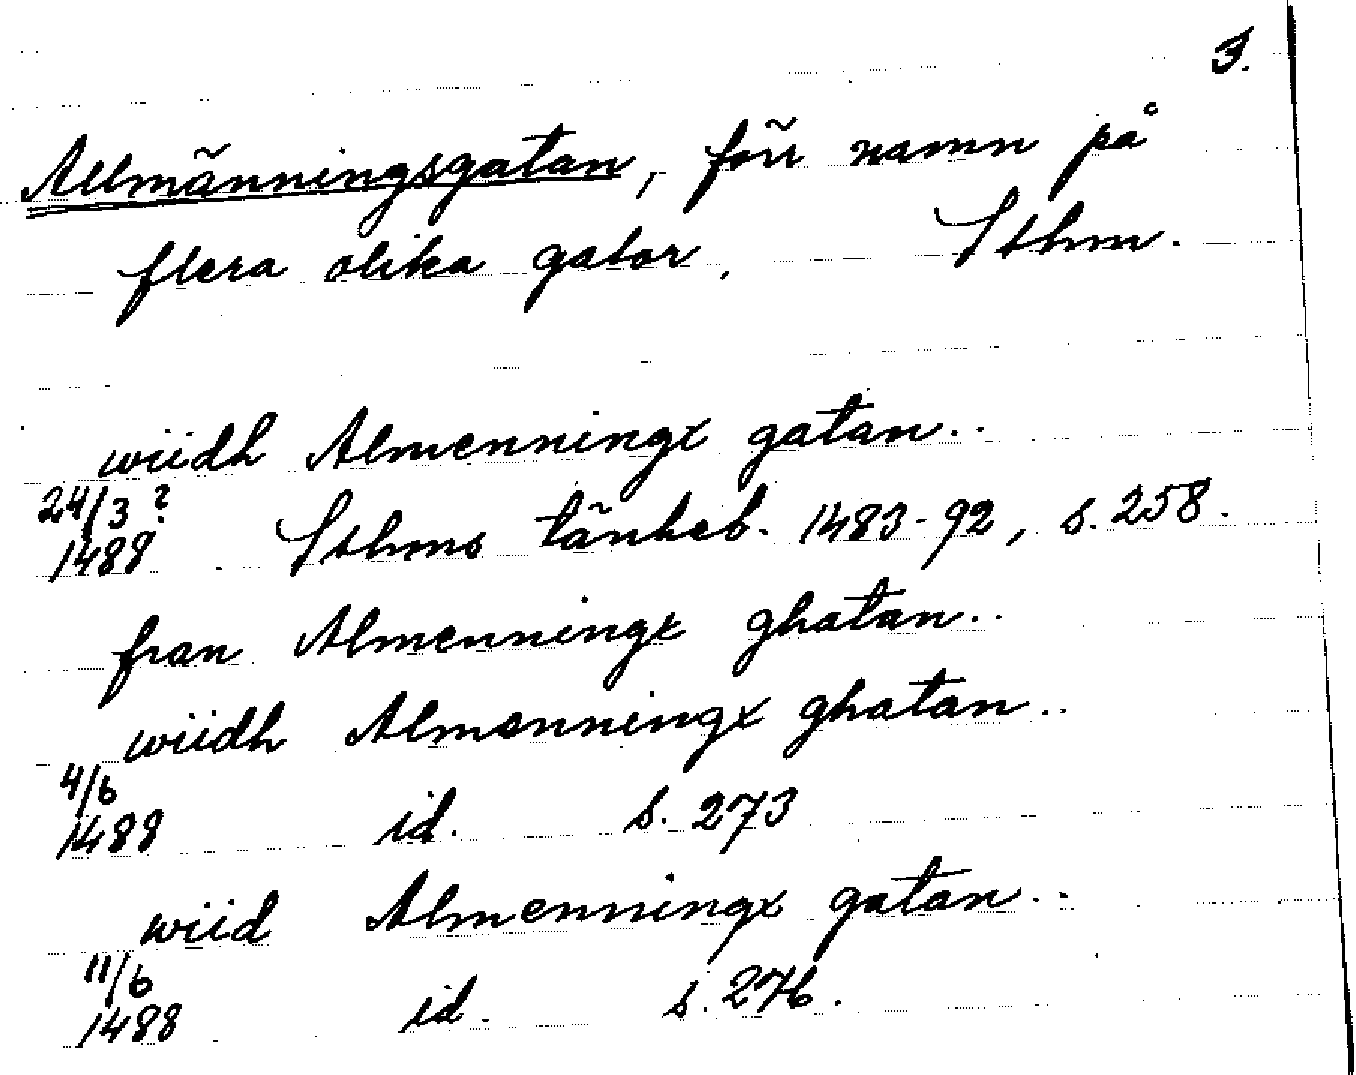 3.
Allmänningsgatan, förr namn på
flera olika gator, Sthm.
wiidh Almenningx gatan..
24/3 ?
1488 Sthms tänkeb. 1483-92, s. 258.
fran Almenningx ghatan..
wiidh Almenningx ghatan..
4/6
1488 id. s. 273
wiid Almenningx gatan..
11/6
1488 id. s. 276.